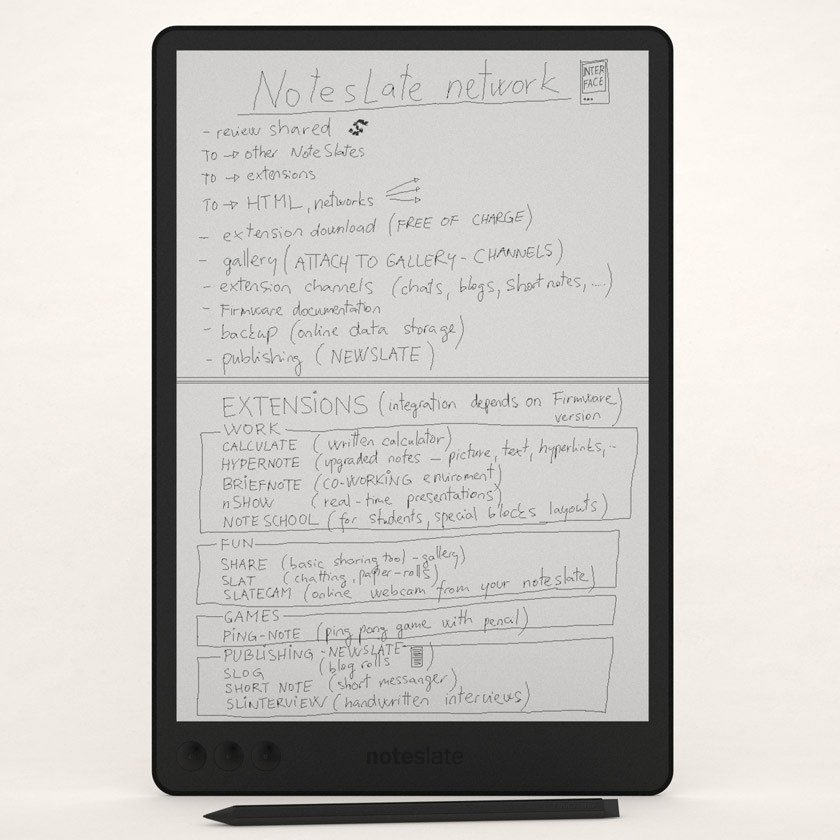 NoteSlate network
INTER
FACE
- review shared
TO → other NoteSlates
TO → extensions
TO → HTML, networks
- extension download (FREE OF CHARGE)
- gallery (ATTACH TO GALLERY - CHANNELS)
- extension channels (chats, blogs, short notes, ...)
- Firmware documentation
- backup (online data storage)
- publishing (NEWSLATE)
EXTENSIONS (integration depends on Firmware version)
WORK
CALCULATE (written calculator)
HYPERNOTE (upgraded notes – picture, text, hyperlinks, ..
BRIEFNOTE (CO-WORKING enviroment)
nSHOW (real-time presentations)
NOTESCHOOL (for students, special blocks layouts)
FUN
SHARE (basic sharing tool - gallery)
SLAT (chatting, paper-rolls)
SLATECAM (online webcam from your noteslate)
GAMES
PING-NOTE (ping pong game with pencil)
PUBLISHING - NEWSLATE
SLOG (blog rolls)
SHORT NOTE (short messanger)
SLINTERVIEW (handwritten interviews)
noteslate